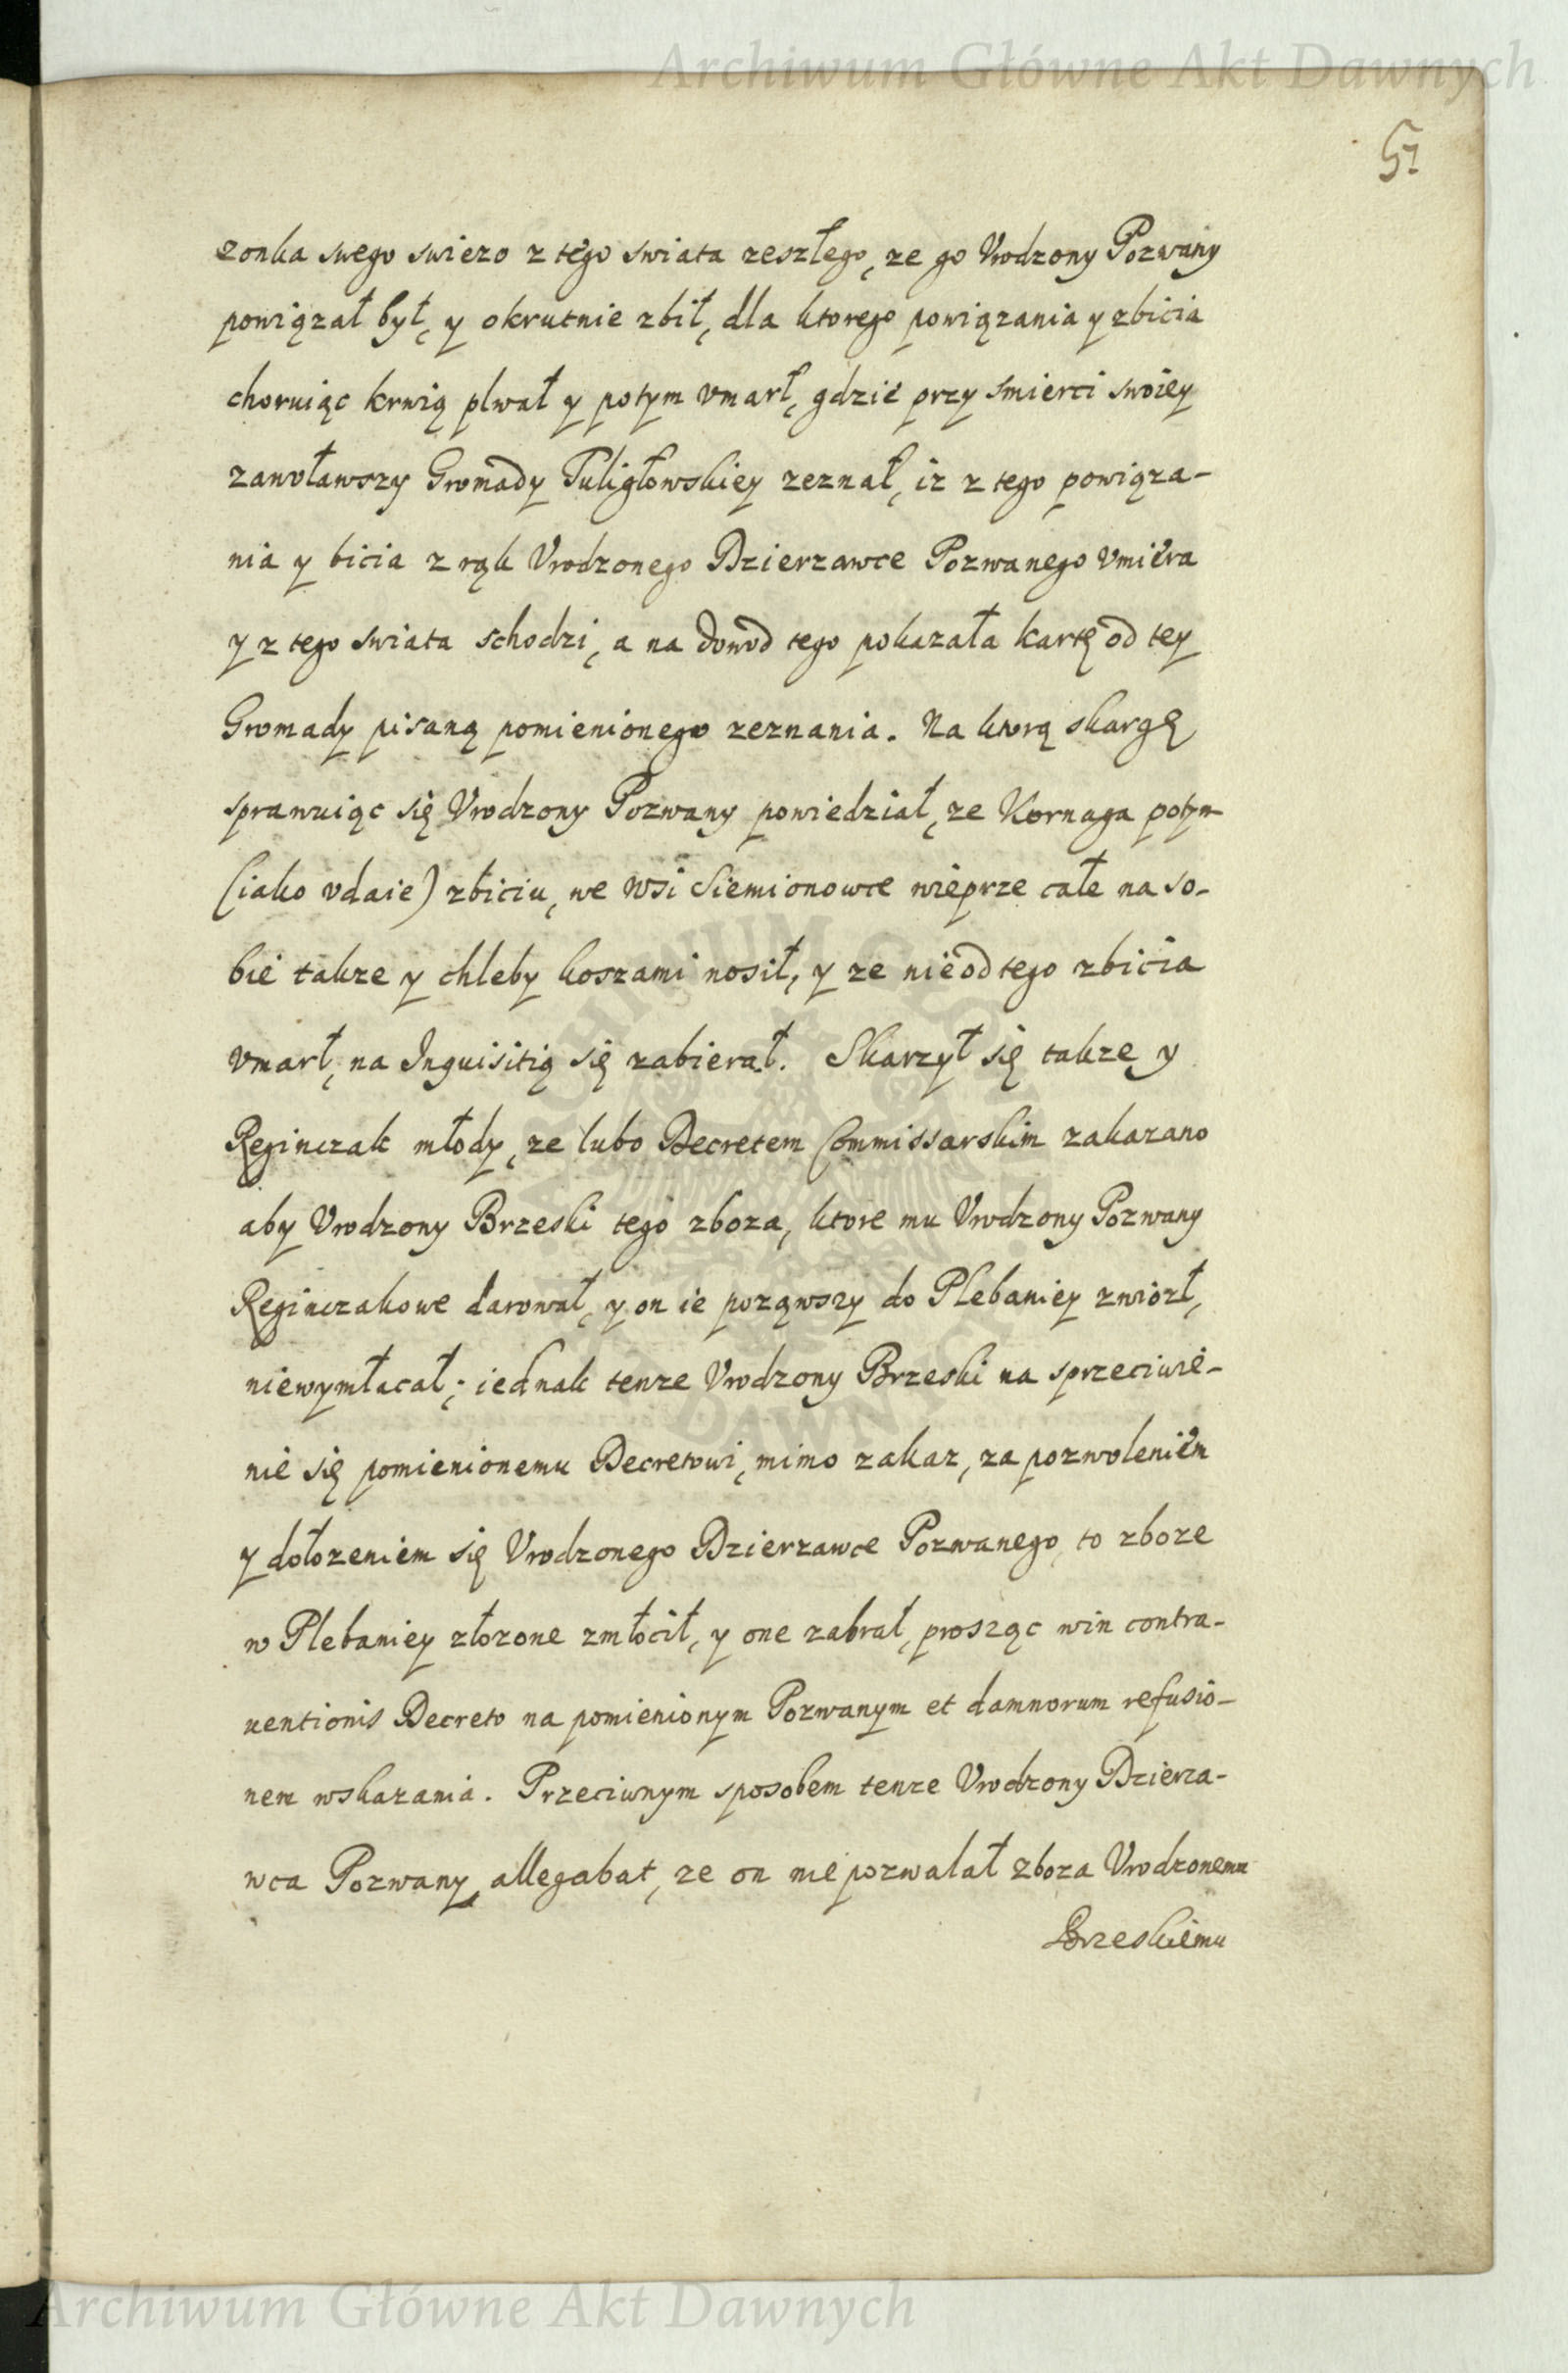 Archiwum Główne Akt Dawnych
57
zonka swego swiezo z tego swiata zeszłego, ze go Vrodzony Pozwany
powiązał był, y okrutnie zbił, dla ktorego powiązania y zbicia
choruiąc krwią plwał y potym vmarł, gdzie przy smierci swoiey
zawoławszy Gromady Tuligłowskiey zeznał, iz z tego powiąza-
nia y bicia z rąk Vrodzonego Dzierzawce Pozwanego vmiera
y z tego swiata schodzi, a na dowod tego pokazała kartę od tey
Gromady pisaną pomienionego zeznania. Na ktorą skargę
sprawuiąc się Vrodzony Pozwany powiedział, ze Kornaga potym
(iako vdaie) zbiciu, we wsi Siemionowce wieprze całe na so-
bie takze y chleby koszami nosił, y ze nie od tego zbicia
vmarł, na Inquisitią się zabierał. Skarzył się takze y
Reginczak młody, ze lubo Decretem Commissarskim zakazano
aby Vrodzony Brzeski tego zboza, ktore mu Vrodzony Pozwany
Reginczakowe darował, y on ie poząwszy do Plebaniey zwiozł,
niewymłacał; iednak tenze Vrodzony Brzeski na sprzeciwie-
nie się pomienionemu Decretowi, mimo zakaz, za pozwoleniem
y dołozeniem się Vrodzonego Dzierzawce Pozwanego, to zboze
w Plebaniey złozone zmłocił, y one zabrał, prosząc win contra-
uentionis Decreto na pomienionym Pozwanym et damnorum refusio-
nem wskazania. Przeciwnym sposobem tenze Vrodzony Dzierza-
wca Pozwany, allegabat, ze on nie pozwalał zboza Vrodzonemu
Brzeskiemu
Archiwum Główne Akt Dawnych